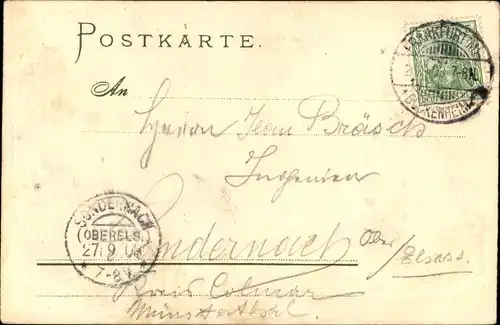 POSTKARTE.
FRANKFURT
BOCKENHEIM
An
Herrn Jean Bräsch
Ingenieur
SONDERNACH
(OBERELS.)
27.9.
7-8
Sondernach Ober/
Elsass.
Kreis Colmar
Münsterthal.